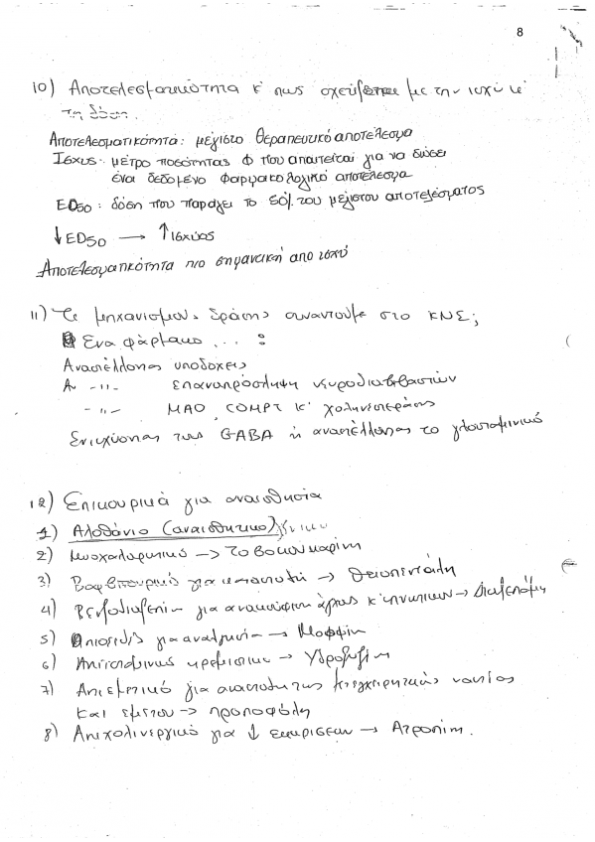 8
10) Αποτελεσματικότητα κ' πως σχετίζεται με την ισχύ κ'
τη δόση.
Αποτελεσματικότητα: μέγιστο θεραπευτικό αποτέλεσμα
Ισχύς: μέτρο ποσότητας Φ που απαιτείται για να δώσει
ένα δεδομένο φαρμακολογικό αποτέλεσμα
ED50: δόση που παράγει το 50% του μέγιστου αποτελέσματος
↓ED50 → ↑ισχύος
Αποτελεσματικότητα πιο σημαντική από ισχύ
11) Τι μηχανισμούς δράσης συναντούμε στο ΚΝΣ;
Ένα φάρμακο ... :
Αναστέλλοντας υποδοχείς
Α -"- επαναπρόσληψη νευροδιαβιβαστών
-"- MAO, COMPT κ' χολινεστεράσης
Ενισχύοντας τους GABA ή αναστέλλοντας το γλουταμινικό
12) Επικουρικά για αναισθησία
1) Αλοθάνιο (αναισθητικό) γενικό
2) Μυοχαλαρωτικό → Τοβοκουραρίνη
3) Βαρβιτουρικό για καταστολή → Θειοπεντάλη
4) Βενζοδιαζεπίνη για ανακούφιση άγχους κ' → Διαζεπάμη
5) Οπιοειδές για αναλγησία → Μορφίνη
6) Αντιισταμινικός ηρεμιστικό → Υδροξυζίνη
7) Αντιεμετικό για αποφυγή της μετεγχειρητικής ναυτίας
και εμέτου → προποφόλη
8) Αντιχολινεργικό για ↓ εκκρίσεων → Ατροπίνη.